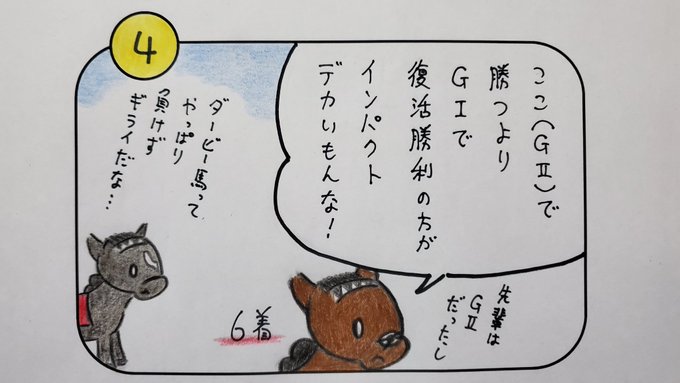 4
ここ(GⅡ)で
勝つより
GⅠで
復活勝利の方が
インパクト
デカいもんな!
先輩は
GⅡ
だったし
ダービー馬って
やっぱり
負けず
ギライだな…
6着